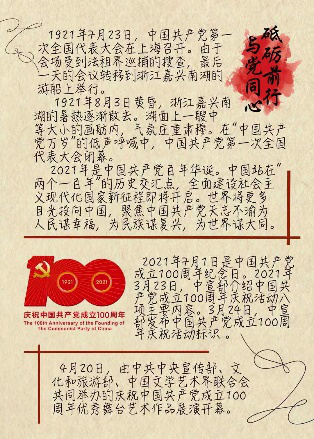 1921年7月23日，中国共产党第一
次全国代表大会在上海召开。由于
会场受到法租界巡捕的搜查，最后
一天的会议转移到浙江嘉兴南湖的
游船上举行。
1921年8月3日黄昏，浙江嘉兴南
湖的暑热逐渐散去。湖面上一艘中
等大小的画舫内，气氛庄重肃穆。在“中国共产
党万岁”的低声呼喊中，中国共产党第一次全国
代表大会闭幕。
砥砺前行
与党同心
2021年是中国共产党百年华诞。中国站在“
两个一百年”的历史交汇点，全面建设社会主
义现代化国家新征程即将开启。世界将更多
目光投向中国，聚焦中国共产党矢志不渝为
人民谋幸福，为民族谋复兴，为世界谋大同。
100
1921
2021
庆祝中国共产党成立100周年
The 100th Anniversary of the Founding of
the Communist Party of China
2021年7月1日是中国共产党
成立100周年纪念日。2021年
3月23日，中宣部介绍中国共
产党成立100周年庆祝活动八
项主要内容。3月24日，中宣
部发布中国共产党成立100周
年庆祝活动标识。
4月20日，由中共中央宣传部、文
化和旅游部、中国文学艺术界联合会
共同举办的庆祝中国共产党成立100
周年优秀舞台艺术作品展演开幕。